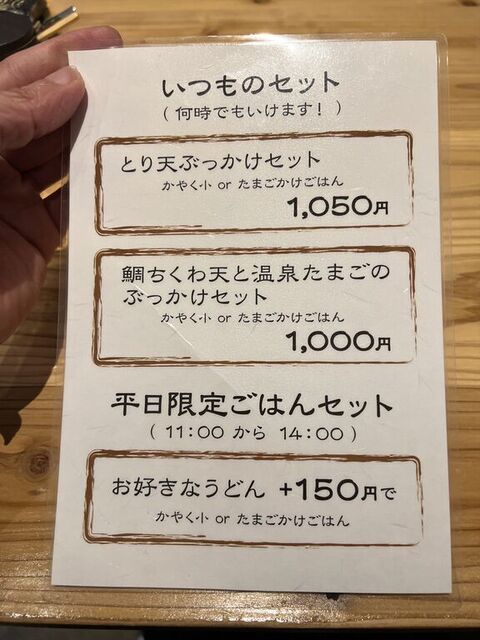 いつものセット
( 何時でもいけます! )
とり天ぶっかけセット
かやく小 or たまごかけごはん
1,050円
鯛ちくわ天と温泉たまごの
ぶっかけセット
かやく小 or たまごかけごはん
1,000円
平日限定ごはんセット
( 11:00 から 14:00 )
お好きなうどん +150円で
かやく小 or たまごかけごはん